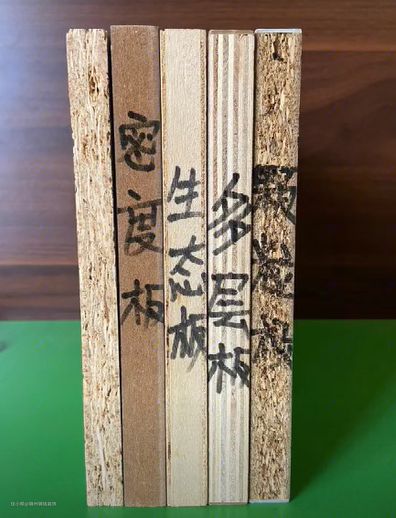 密度板
生态板
多层板
颗粒板